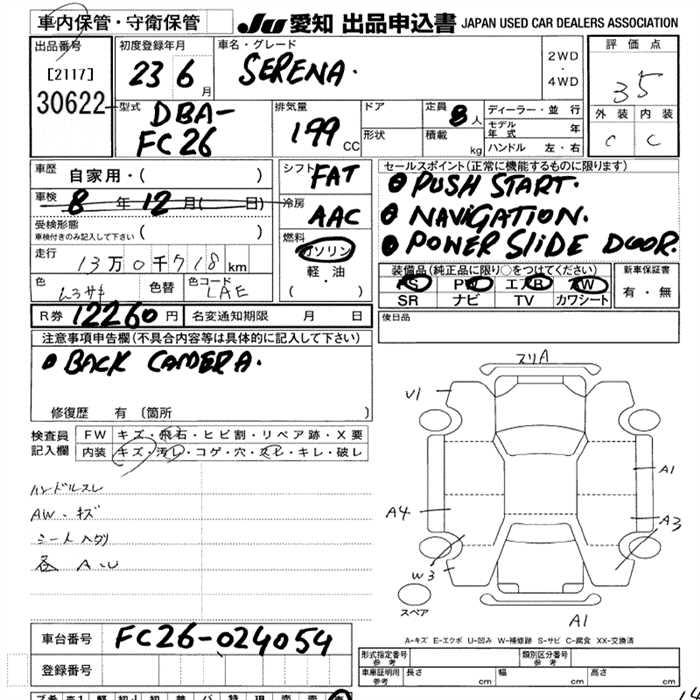 車内保管・守衛保管
JU 愛知 出品申込書 JAPAN USED CAR DEALERS ASSOCIATION
出品番号
[2117]
30622
初度登録年月
23 6 月
車名・グレード
SERENA.
2WD
・
4WD
評価点
35
外装 内装
C C
型式
DBA-
FC26
排気量
199 CC
ドア
形状
定員
8 人
積載
kg
ディーラー・並 行
モデル年式 年
ハンドル 左・右
車歴
自家用・( )
車検
8 年 12 月( 日)
受検形態
車検付きのみ記入して下さい ( )
走行
13万0千718 km
色
色替
色コード
LAE
シフト
FAT
冷房
AAC
燃料
ガソリン
軽・油
( ・ )
セールスポイント(正常に機能するものに限ります)
PUSH START.
NAVIGATION.
POWER SLIDE DOOR.
装備品(純正品に限り○をつけてください)
PS PW エアB AW
SR ナビ TV カワシート
新車保証書
有・無
R券 12260 円
名変通知期限 月 日
後日品
注意事項申告欄(不具合内容等は具体的に記入して下さい)
BACK CAMERA.
修復歴 有 (箇所 )
検査員
記入欄
FW キズ・飛石・ヒビ割・リペア跡・X要
内装 キズ・汚レ・コゲ・穴・スレ・キレ・破レ
ハンドルスレ
AW・キズ
A・U
スリA
U1
A1
A4
A3
W3
スペア
A1
A-キズ E-エクボ U-凹み W-補修跡 S-サビ C-腐食 XX-交換済
車台番号
FC26-024054
登録番号
形式指定番号
参考
類別区分番号
参考
車庫証明用
参考
長さ cm 幅 cm 高さ cm